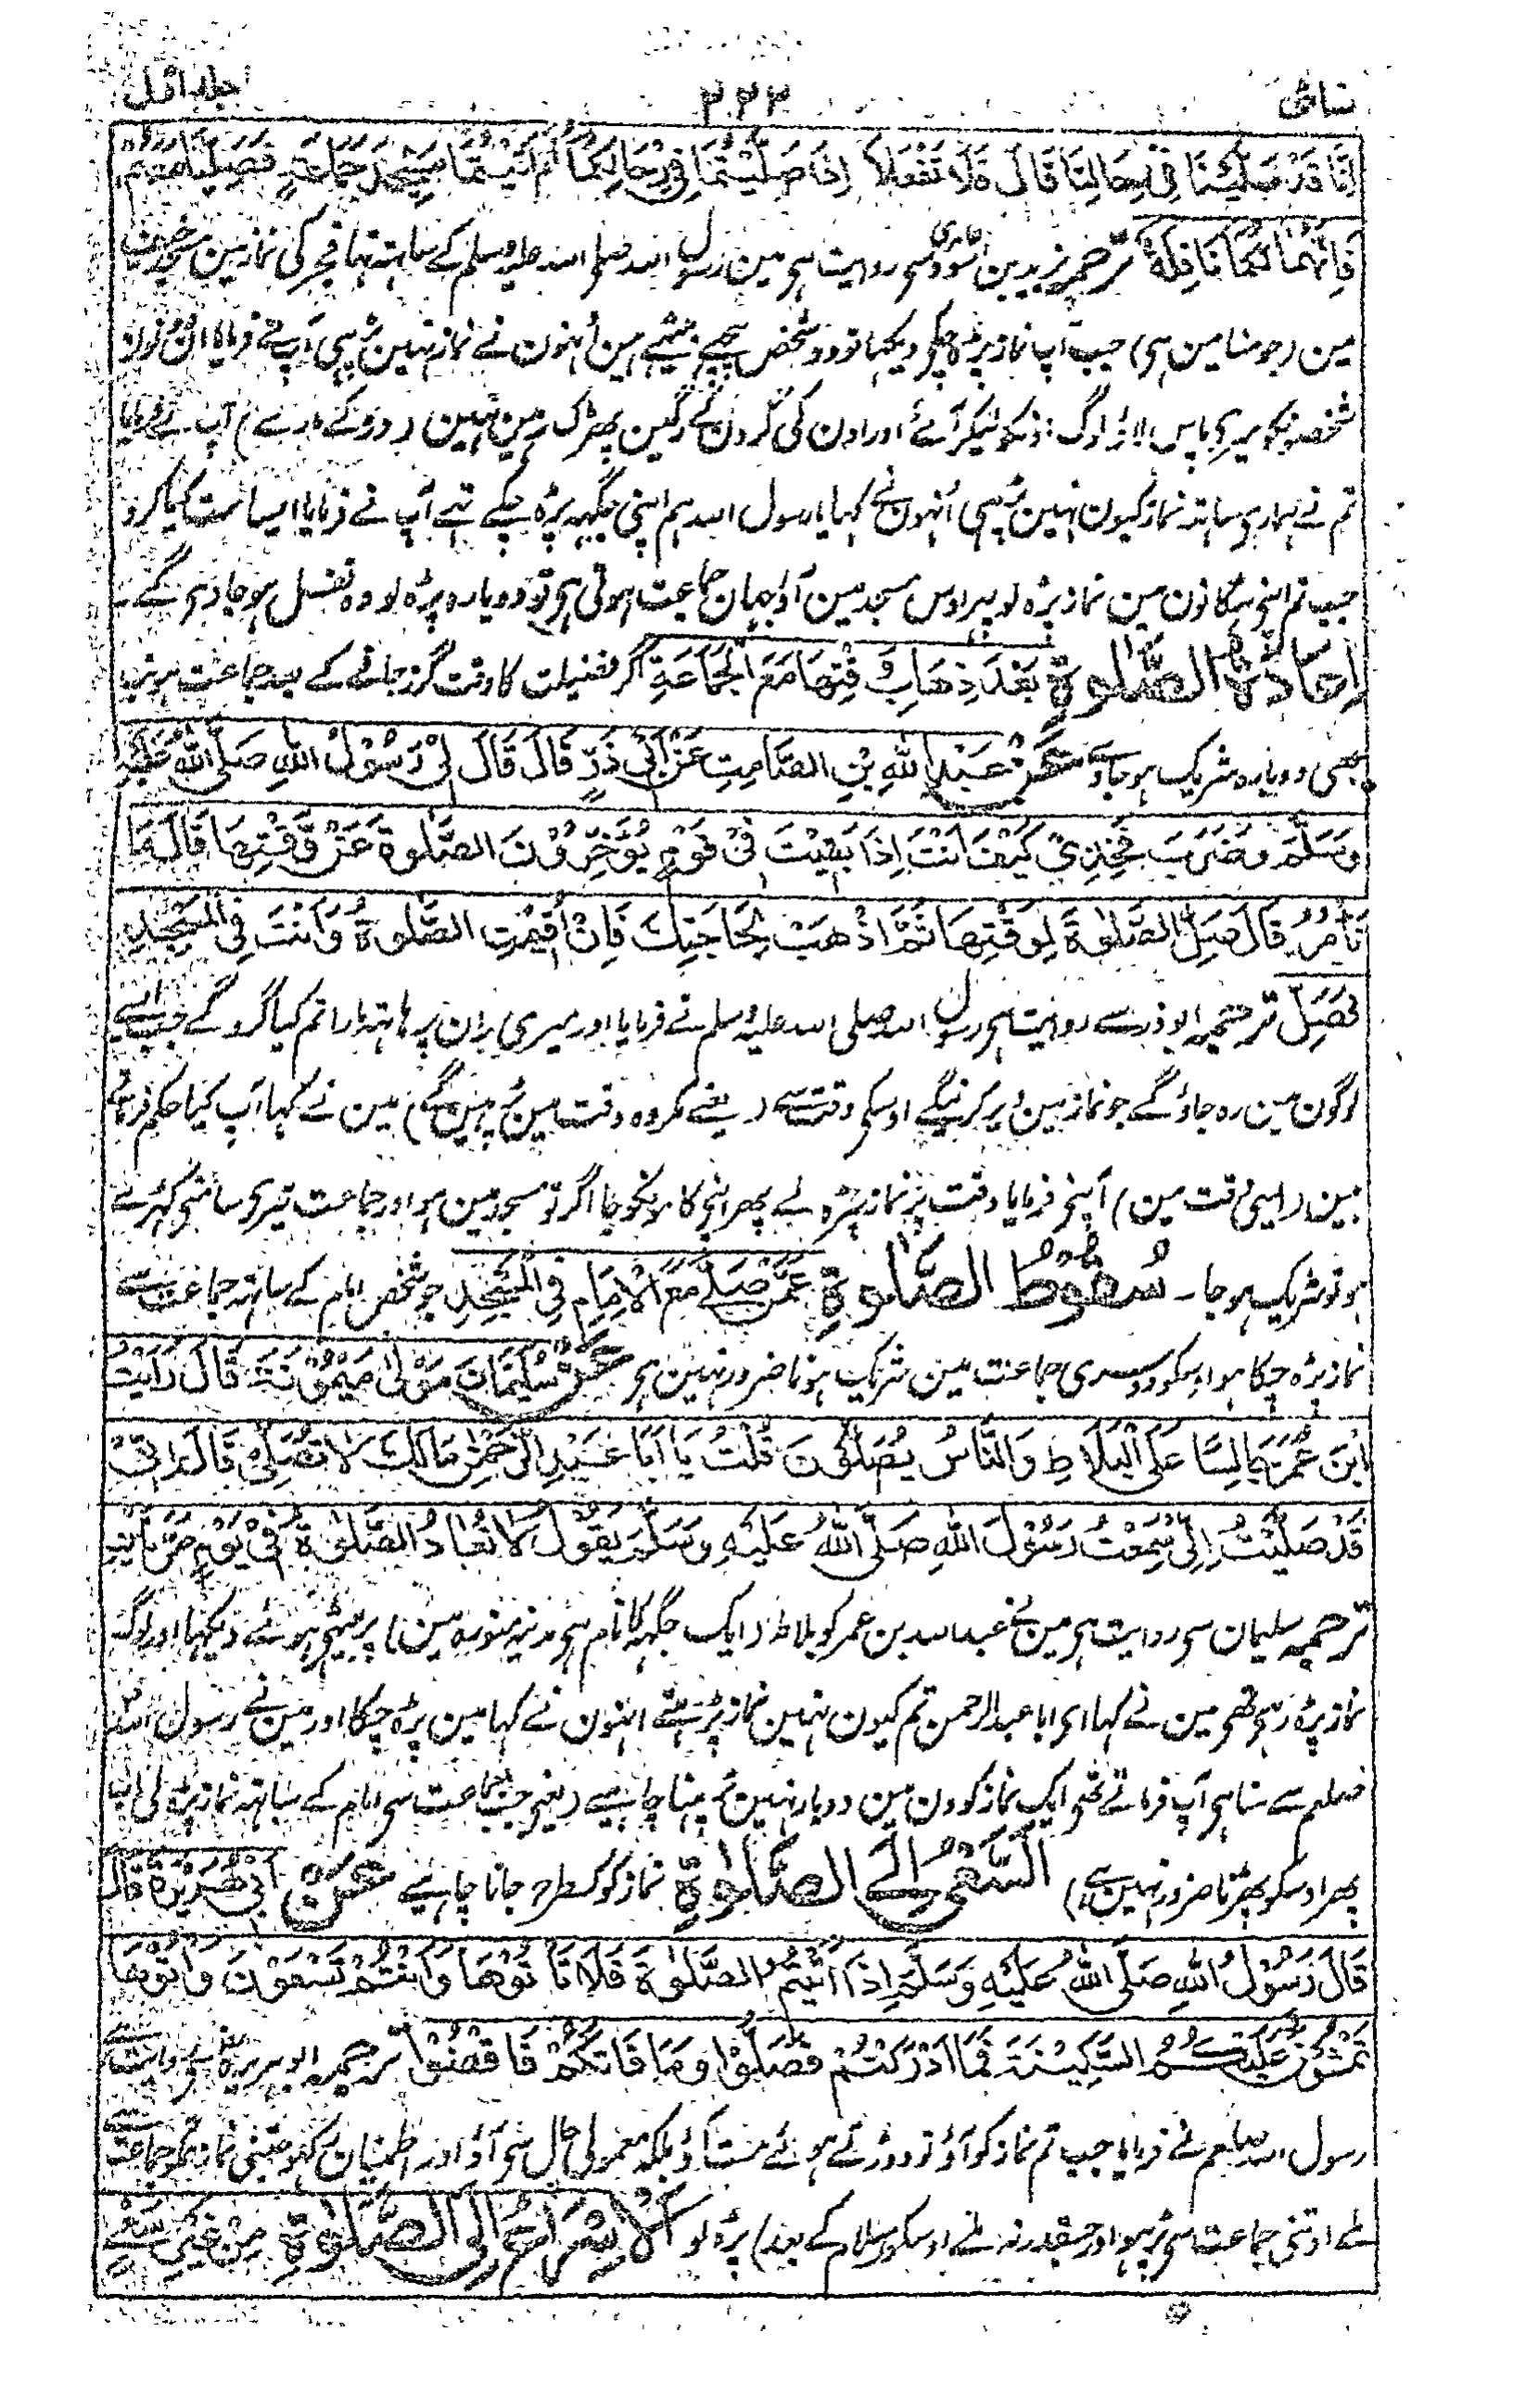 نسائی ۲۲۲ جلد اول
اِنَّا قَدْ صَلَّيْنَا فِيْ رِحَالِنَا قَالَ فَلَا تَفْعَلَا اِذَا صَلَّيْتُمَا فِيْ رِحَالِكُمَا ثُمَّ اَتَيْتُمَا مَسْجِدَ جَمَاعَةٍ فَصَلِّيَا مَعَهُمْ
فَاِنَّهَا لَكُمَا نَافِلَةٌ ترجمہ یزید بن اسود عامری سے روایت ہی مین رسول اللہ صلی اللہ علیہ وسلم کے ساتہہ تہا فجر کی نماز مین مسجد خیف
مین (جو منا مین ہی) جب آپ نماز پڑہ چکے دیکہا تو دو شخص پیچہے بیٹہے ہین اُنہون نے نماز نہین پڑہی آپ نے فرمایا ان دونون
شخصونکو میری پاس لاؤ لوگ اونکو لیکر آئے اور اون کی گردن کے رگین پھڑک رہین تہین (ڈر کے مارے) آپ نے فرمایا
تم نے ہماری ساتہہ نماز کیون نہین پڑہی اُنہون نے کہا یا رسول اللہ ہم اپنی جگہہ پڑہ چکے تہے آپ نے فرمایا ایسا مت کیا کرو
جب تم اپنے ٹہکانون مین نماز پڑہ لو پہر اوس مسجد مین آؤ جہان جماعت ہوتی ہی تو دوبارہ پڑہ لو وہ نفل ہو جاویگے۔
اِعَادَةُ الصَّلٰوةِ بَعْدَ ذِهَابِ وَقْتِهَا مَعَ الْجَمَاعَةِ اگر فضیلت کا وقت گزر جانے کے بعد جماعت ہو تب
بہی دوبارہ شریک ہو جاوے عَنْ عَبْدِ اللّٰهِ بْنِ الصَّامِتِ عَنْ اَبِيْ ذَرٍّ قَالَ قَالَ لِيْ رَسُوْلُ اللّٰهِ صَلَّى اللّٰهُ عَلَيْهِ
وَسَلَّمَ وَضَرَبَ فَخِذِيْ كَيْفَ اَنْتَ اِذَا بَقِيْتَ فِيْ قَوْمٍ يُؤَخِّرُوْنَ الصَّلٰوةَ عَنْ وَقْتِهَا قَالَ مَا
تَأْمُرُ قَالَ صَلِّ الصَّلٰوةَ لِوَقْتِهَا ثُمَّ اذْهَبْ لِحَاجَتِكَ فَاِنْ اُقِيْمَتِ الصَّلٰوةُ وَاَنْتَ فِي الْمَسْجِدِ
فَصَلِّ ترجمہ ابوذر سے روایت ہی رسول اللہ صلی اللہ علیہ وسلم نے فرمایا اور میری ران پر ہاتہہ مارا تم کیا کروگے جب ایسے
لوگون مین رہ جاؤگے جو نماز مین دیر کرینگے اوسکی وقت سے (یعنے مکروہ وقت مین پڑہینگے) مین نے کہا آپ کیا حکم فرماتے
ہین (ایسی وقت مین) آپنے فرمایا وقت پر نماز پڑہ لے پھر اپنے کامونکو جا اگر تو مسجد مین ہو اور جماعت تیری سامنے کہڑے
ہو تو شریک ہو جا۔ سُقُوْطُ الصَّلٰوةِ عَمَّنْ صَلّٰى مَعَ الْاِمَامِ فِي الْمَسْجِدِ جو شخص امام کے ساتہہ جماعت سے
نماز پڑہ چکا ہو اوسکو دوسری جماعت مین شریک ہونا ضرور نہین ہی عَنْ سُلَيْمَانَ مَوْلٰى مَيْمُوْنَةَ قَالَ رَاَيْتُ
ابْنَ عُمَرَ جَالِسًا عَلَى الْبَلَاطِ وَالنَّاسُ يُصَلُّوْنَ قُلْتُ يَا اَبَا عَبْدِ الرَّحْمٰنِ مَا لَكَ لَا تُصَلِّيْ قَالَ اِنِّيْ
قَدْ صَلَّيْتُ اِنِّيْ سَمِعْتُ رَسُوْلَ اللّٰهِ صَلَّى اللّٰهُ عَلَيْهِ وَسَلَّمَ يَقُوْلُ لَا تُعَادُ الصَّلٰوةُ فِيْ يَوْمٍ مَرَّتَيْنِ
ترجمہ سلیمان سے روایت ہی مین نے عبداللہ بن عمر کو بلاط (ایک جگہہ کا نام ہی مدینہ منورہ مین) پر بیٹہے ہوئے دیکہا اور لوگ
نماز پڑہ رہی تھے مین نے کہا ای ابا عبدالرحمن تم کیون نہین نماز پڑہتے انہون نے کہا مین پڑہ چکا اور مین نے رسول اللہ
صلعم سے سنا ہی آپ فرماتے تھے ایک نماز کو دن مین دوبار نہین پڑہنا چاہیے (یعنے جب جماعت سے امام کے ساتہہ نماز پڑہ لی اب
پھر اوسکو پھڑنا ضرور نہین ہے) اَلسَّعْيُ اِلَى الصَّلٰوةِ نماز کو کسطرح جانا چاہئیے عَنْ اَبِيْ هُرَيْرَةَ قَالَ
قَالَ رَسُوْلُ اللّٰهِ صَلَّى اللّٰهُ عَلَيْهِ وَسَلَّمَ اِذَا اَتَيْتُمُ الصَّلٰوةَ فَلَا تَأْتُوْهَا وَاَنْتُمْ تَسْعَوْنَ وَاْتُوْهَا
تَمْشُوْنَ عَلَيْكُمُ السَّكِيْنَةَ فَمَا اَدْرَكْتُمْ فَصَلُّوْا وَمَا فَاتَكُمْ فَاقْضُوْا ترجمہ ابوہریرہ سے روایت ہے
رسول اللہ صلعم نے فرمایا جب تم نماز کو آؤ تو دوڑتے ہوئے مت آؤ بلکہ معمولی چال سے آؤ اور اطمینان رکہو جتنی نماز تمکو جماعت سے
ملے اوتنی جماعت سے پڑہو اور جسقدر نہ ملے اوسکو (سلام کے بعد) پڑہ لو اَلْاِسْرَاعُ اِلَى الصَّلٰوةِ مِنْ غَيْرِ سَعْيٍ